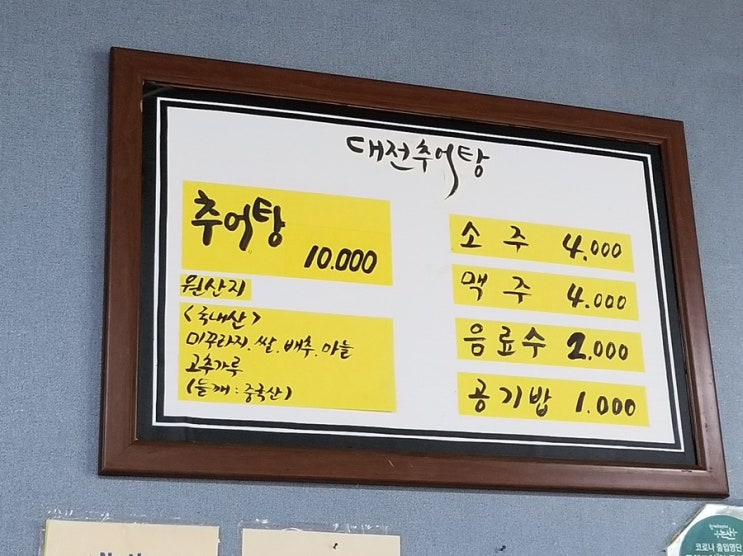 대전추어탕
추어탕
10.000
원산지
<국내산>
미꾸라지. 쌀. 배추. 마늘
고추가루
(들깨 : 중국산)
소주 4.000
맥주 4.000
음료수 2.000
공기밥 1.000
코로나 출입명단